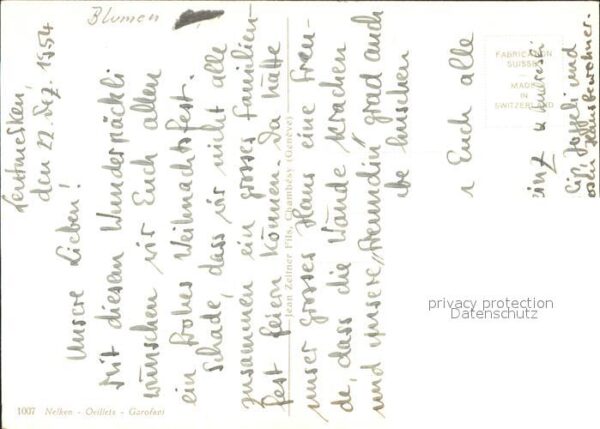 Blumen
den 22. Dez. 1954
Unsere Lieben!
Mit diesem Wunderpächli
wünschen wir Euch allen
ein frohes Weihnachtsfest.
Schade, dass wir nicht alle
zusammen ein grosses Familien-
fest feiern können. Da hätte
unser grosses Haus eine Freu-
de, dass die Wände krachen
und unsere „Freundin" grad auch
huschen
Euch alle
Heinz u. Andresli
Joggeli und
Hausbewohner.
FABRICATION
SUISSE
—
MADE
IN
SWITZERLAND
Jean Zeltner Fils, Chambésy (Genève)
1007 Nelken - Oeillets - Garofani
privacy protection
Datenschutz